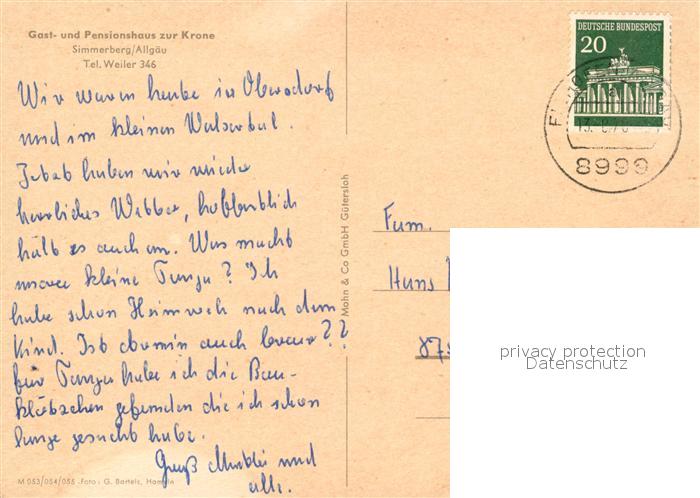 Gast- und Pensionshaus zur Krone
Simmerberg/Allgäu
Tel. Weiler 346
Wir waren heute in Oberstdorf
und im kleinen Walsertal.
Jetzt haben wir wieder
herrliches Wetter, hoffentlich
hält es auch an. Was macht
unsere kleine Tanja? Ich
habe schon Heimweh nach dem
Kind. Ist auch brav??
für Tanja habe ich die Bau-
klötzchen gefunden die ich schon
lange gesucht habe.
Gruß und
alle.
M 053/054/055 -Foto: G. Bartels, Hameln
Mohn & Co GmbH Gütersloh
DEUTSCHE BUNDESPOST
20
8999
Fam.
Hans
875
privacy protection
Datenschutz